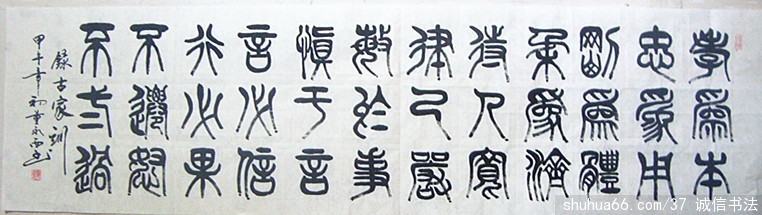 孝為本
忠為用
剛為體
柔為濟
待人寬
律己嚴
敏於事
慎于言
言必信
行必果
不遷怒
不弍過
錄古家訓
甲午年初
shuhua66.com/37 诚信书法